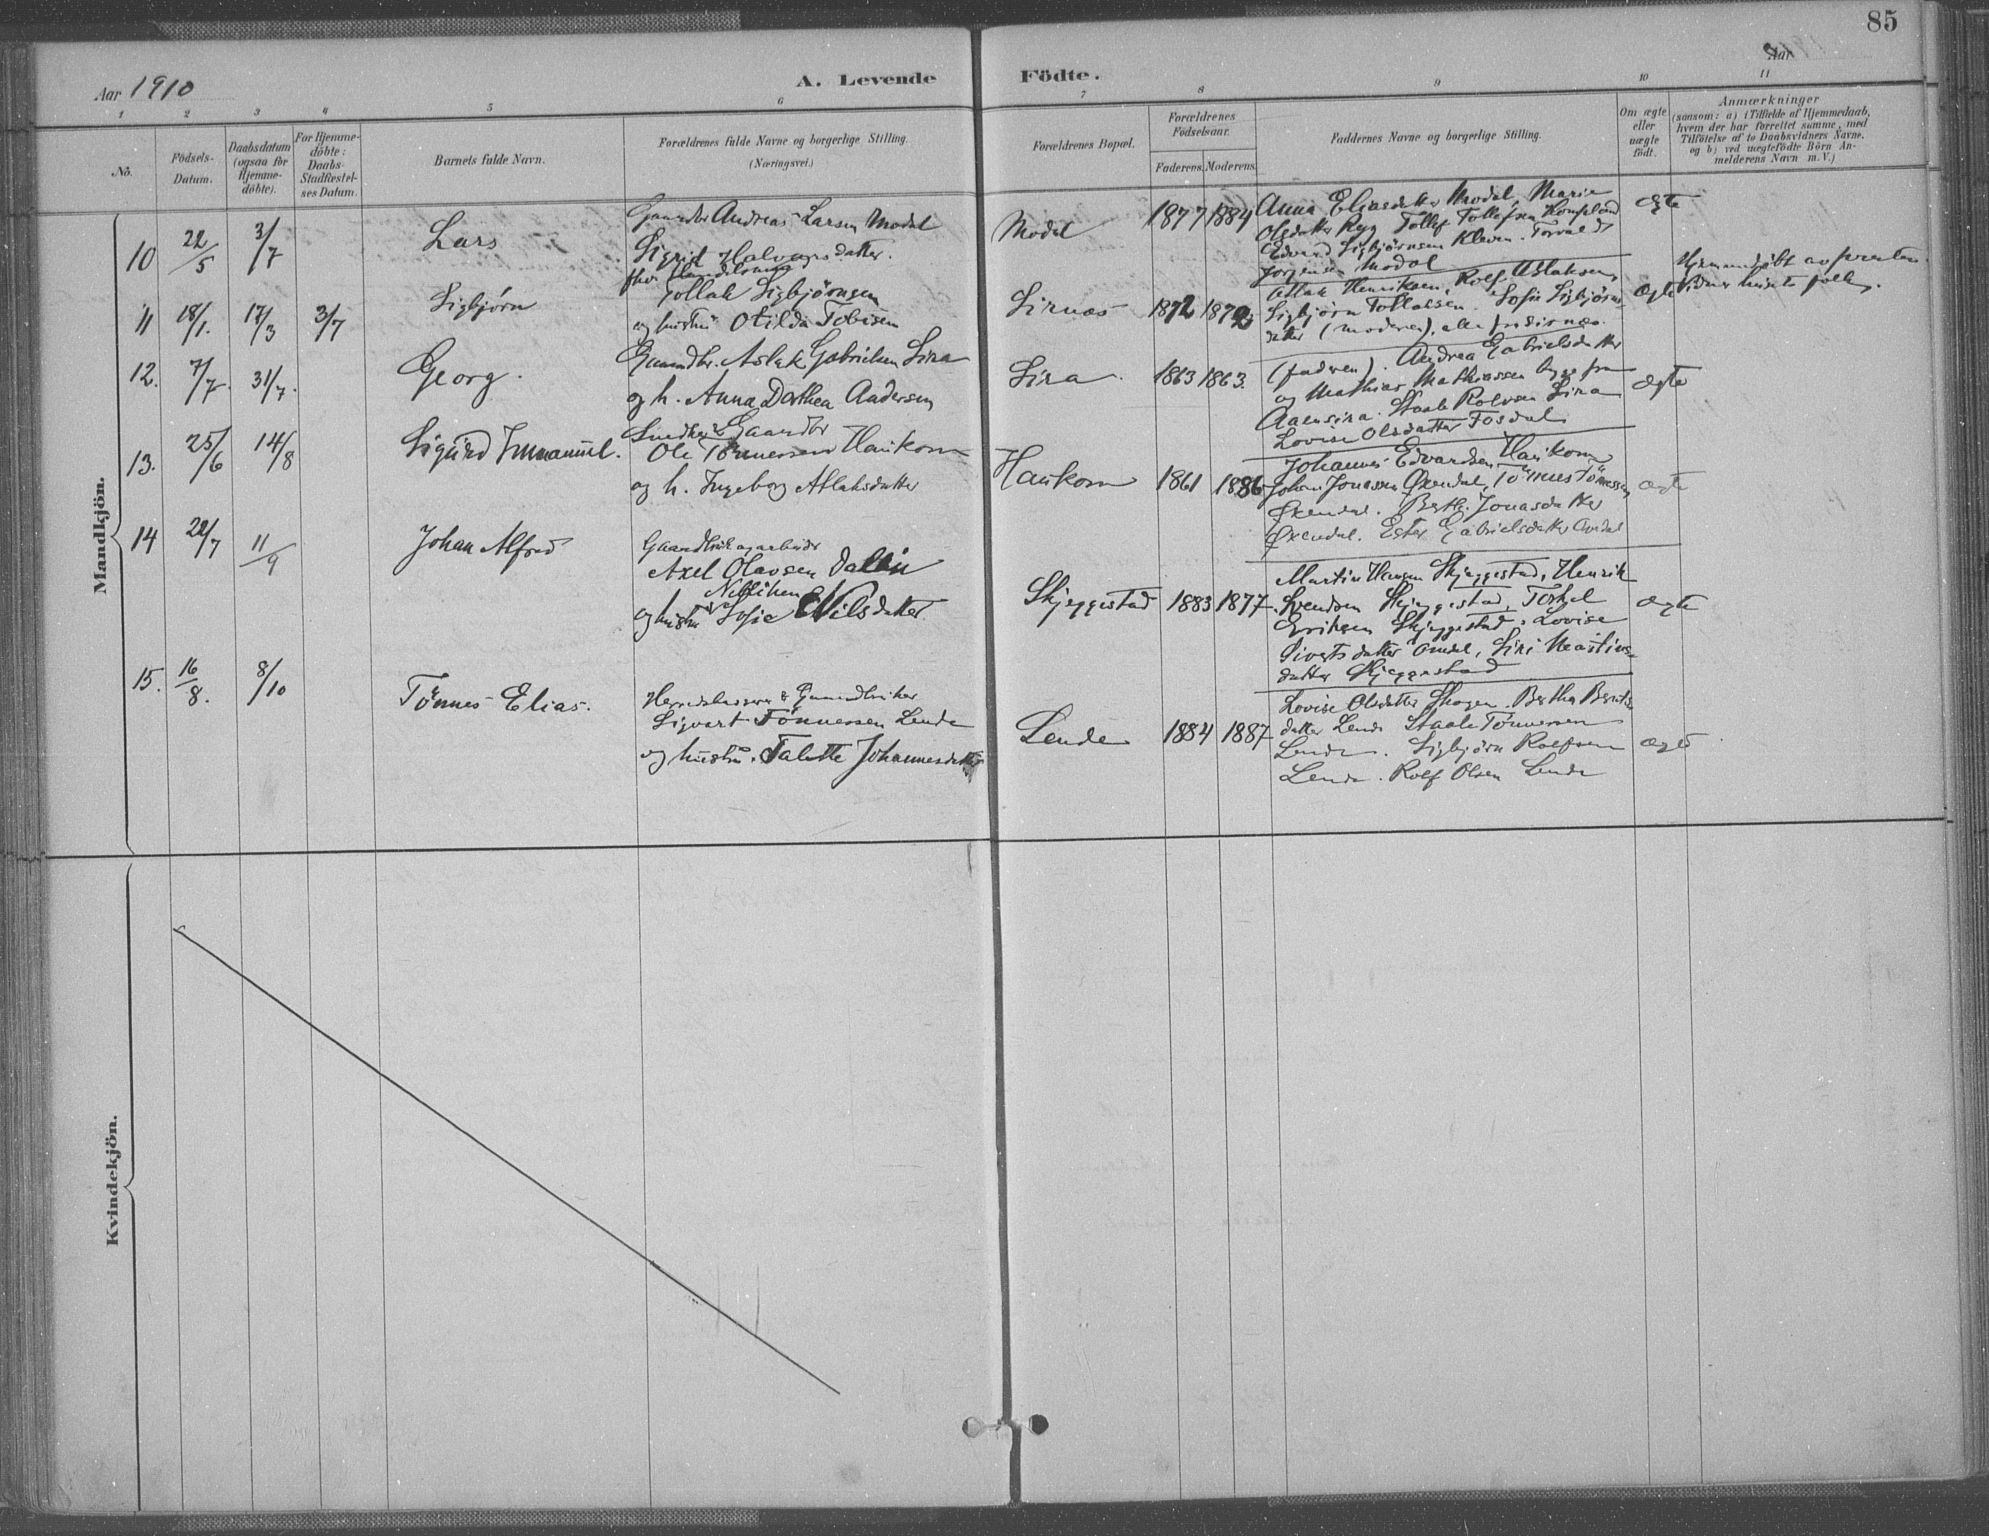 85
Aar 1910
A. Levende Födte.
Aar
1 2 3 4 5 6 7 8 9 10 11
No.
Födsels-Datum.
Daabsdatum (ogsaa for Hjemme-döbte).
For Hjemme-döbte: Daabs-Stadfæstel-ses Datum.
Barnets fulde Navn.
Forældrenes fulde Navne og borgerlige Stilling.
(Næringsvei.)
Forældrenes Bopæl.
Forældrenes Födselsaar.
Faderens. Moderens.
Faddernes Navne og borgerlige Stilling.
Om ægte eller uægte födt.
Anmærkninger
(saasom: a) i Tilfælde af Hjemmedaab,
hvem der har forrettet samme, med
Tilföielse af to Daabsvidners Navne,
og b) ved uægtefödte Börn An-
melderens Navn m. V.)
Mandkjön.
10 22/5 3/7 Lars
Gaardbr Andreas Larsen Modal
Sigrid Halvorsdatter.
Modal 1877 1884
Anna Eliasdatter Modal, Marie
Olsdatter Ryg Tollef Tollefsen
Edvard Sigbjørnsen Kleven. Torvald
Jørgensen Modal
ægte
11 18/1. 17/3 3/7 Sigbjørn
Tollak Sigbjørnsen
og hustru Otilda Tobisen
Sirnæs 1872 1872
Aslak Henriksen, Rolf Aslaksen,
Sigbjørn Tollassen. Sofie Sigbjørns
datter (moderen), alle fra Sirnæs.
ægte
Hjemmedøbt av presten.
12. 7/7. 31/7. Georg.
Gaardbr. Aslak Gabrielsen Sira
og h. Anna Dorthea Andersen
Sira. 1863 1863.
(faderen). Andrea Gabrielsdatter
og Mathias Mathiassen begge fra
Aaensira. Staale Rolvsen Sira
Lovise Olsdatter Fosdal
ægte
13. 25/6 14/8 Sigurd Immanuel.
Snedker & Gaardbr
Ole Tønnessen Haukom
og h. Ingeborg Aslaksdatter
Haukom 1861 1886
Johannes Edvardsen Haukom
Johan Jonassen Øxendal, Tønnes Tønnessen
Øxendal. Berthe Jonasdatter
Øxendal. Ester Gabrielsdatter Omdal
ægte
14 22/7 11/9 Johan Alfred
Gaardbruk og arbeider
Axel Olavsen Dalin
og hustru Sofie Nilsdatter
Skjeggestad 1883 1877
Martin Hansen Skjeggestad, Henrik
Svendsen Skjeggestad, Torkel
Eriksen Skjeggestad. Lovise
Sivertsdatter Omdal, Siri Martins-
datter Skjeggestad
ægte
15. 16/8. 8/10 Tönnes Elias.
Herredskasserer & Gaardbruker
Sigvart Tönnessen Lende
og hustru. Talette Johannesdatter
Lende 1884 1887
Lovise Olsdatter Skogen. Bertha Berents
datter Lende Staale Tönnessen
Lende. Sigbjörn Rolfsen
Lende. Rolf Olsen Lende
ægte
Kvindekjön.